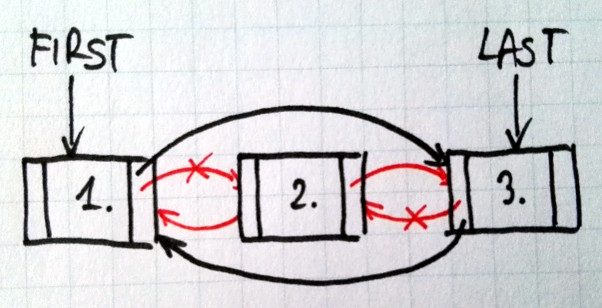 FIRST
LAST
1.
2.
3.